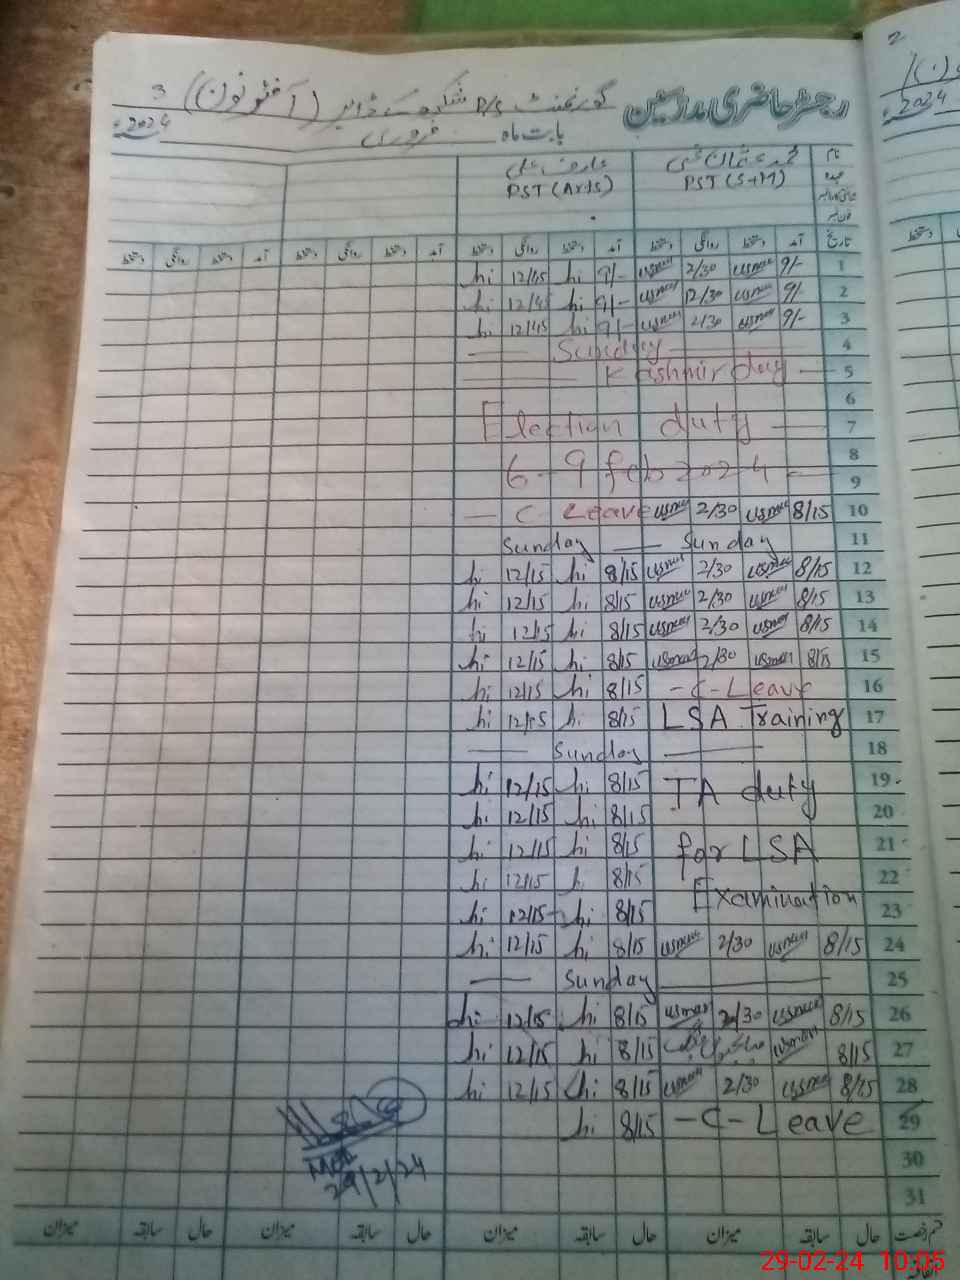 2
3
رجسٹر حاضری مدرسین گورنمنٹ P/S (آفٹر نون)
بابت ماہ فروری 2024ء
2024
نام
عہدہ
محمد عثمان غنی عارف علی
PST (S+M) PST (Arts)
تاریخ آمد دستخط روانگی دستخط آمد دستخط روانگی دستخط آمد دستخط روانگی دستخط آمد دستخط روانگی دستخط
1 9/- usman 2/30 usman 9/- hi 12/45 hi
2 9/- usman 12/30 usman 9/- hi 12/45 hi
3 9/- usman 2/30 usman 9/- hi 12/45 hi
4 Sunday
5 Kashmir day
6
7 Election duty
8
9 6-9 feb 2024
10 8/15 usman 2/30 usman C Leave
11 Sunday Sunday
12 8/15 usman 2/30 usman 8/15 hi 12/15 hi
13 8/15 usman 2/30 usman 8/15 hi 12/15 hi
14 8/15 usman 2/30 usman 8/15 hi 12/15 hi
15 8/15 usman 2/30 usman 8/15 hi 12/15 hi
16 -C-Leave 8/15 hi 12/15 hi
17 LSA Training 8/15 hi 12/15 hi
18 Sunday
19 TA duty 8/15 hi 12/15 hi
20 8/15 hi 12/15 hi
21 for LSA 8/15 hi 12/15 hi
22 8/15 h 12/15 hi
23 Examination 8/15 hi 12/15 hi
24 8/15 usman 2/30 usman 8/15 hi 12/15 hi
25 Sunday
26 8/15 usman 2/30 usman 8/15 hi 12/15 hi
27 8/15 usman 8/15 hi 12/15 hi
28 8/15 usman 2/30 usman 8/15 hi 12/15 hi
29 -C-Leave 8/15 hi
30
31
29/2/24
قسم رخصت حال سابقہ میزان حال سابقہ میزان حال سابقہ میزان حال سابقہ میزان
اتفاقیہ
29-02-24 10:05